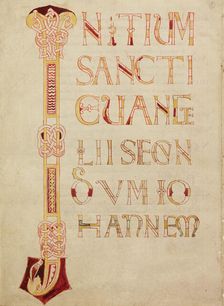 INITIUM
SANCTI
EUANGE
LII SECUN
DUM IO
HANNEM